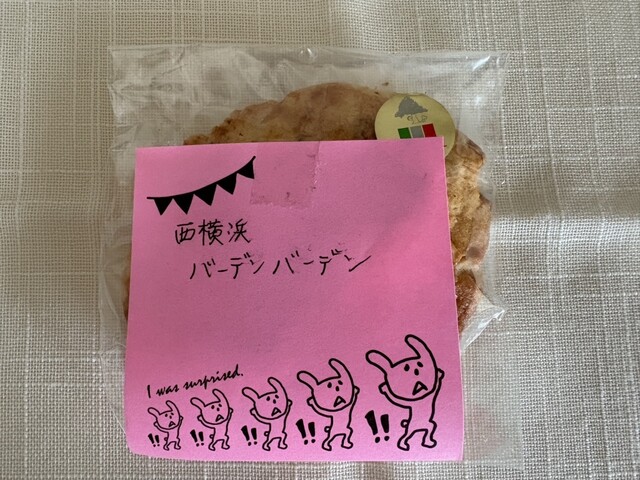 西横浜
バーデンバーデン
I was surprised.
!! !! !! !! !!